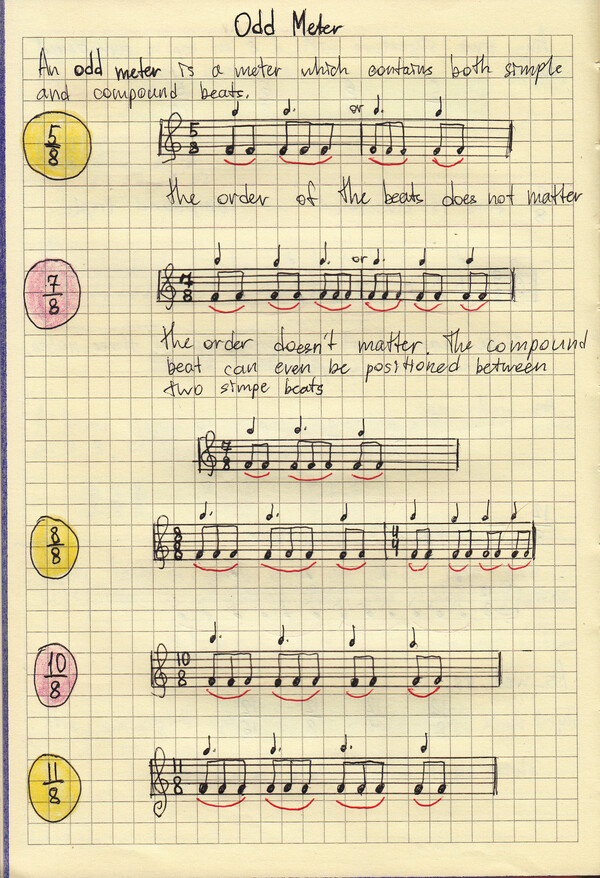 Odd Meter
An odd meter is a meter which contains both simple
and compound beats.
5
8
5
8
or
the order of the beats does not matter
7
8
7
8
or
the order doesn't matter. The compound
beat can even be positioned between
two simpe beats
7
8
8
8
8
8
4
4
10
8
10
8
11
8
11
8